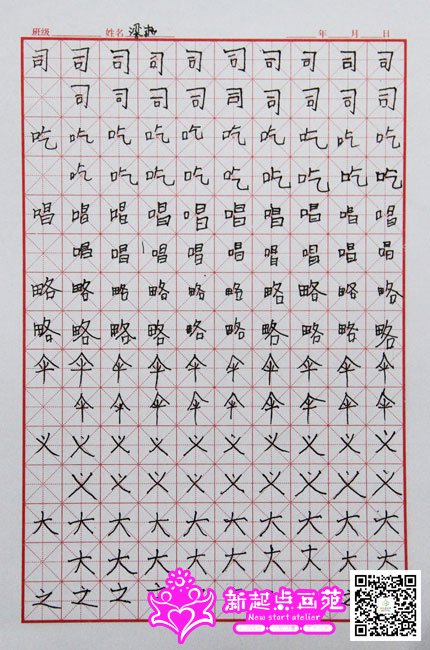 班级 姓名 年 月 日
司 司 司 司 司 司 司 司 司 司
司 司 司 司 司 司 司 司 司
吃 吃 吃 吃 吃 吃 吃 吃 吃 吃
吃 吃 吃 吃 吃 吃 吃 吃 吃
唱 唱 唱 唱 唱 唱 唱 唱 唱 唱
唱 唱 唱 唱 唱 唱 唱 唱 唱
略 略 略 略 略 略 略 略 略 略
略 略 略 略 略 略 略 略 略 略
伞 伞 伞 伞 伞 伞 伞 伞 伞 伞
伞 伞 伞 伞 伞 伞 伞 伞 伞
义 义 义 义 义 义 义 义 义 义
义 义 义 义 义 义 义 义 义
大 大 大 大 大 大 大 大 大 大
大 大 大 大 大 大 大 大 大
之 之 之
新起点画苑
New start atelier